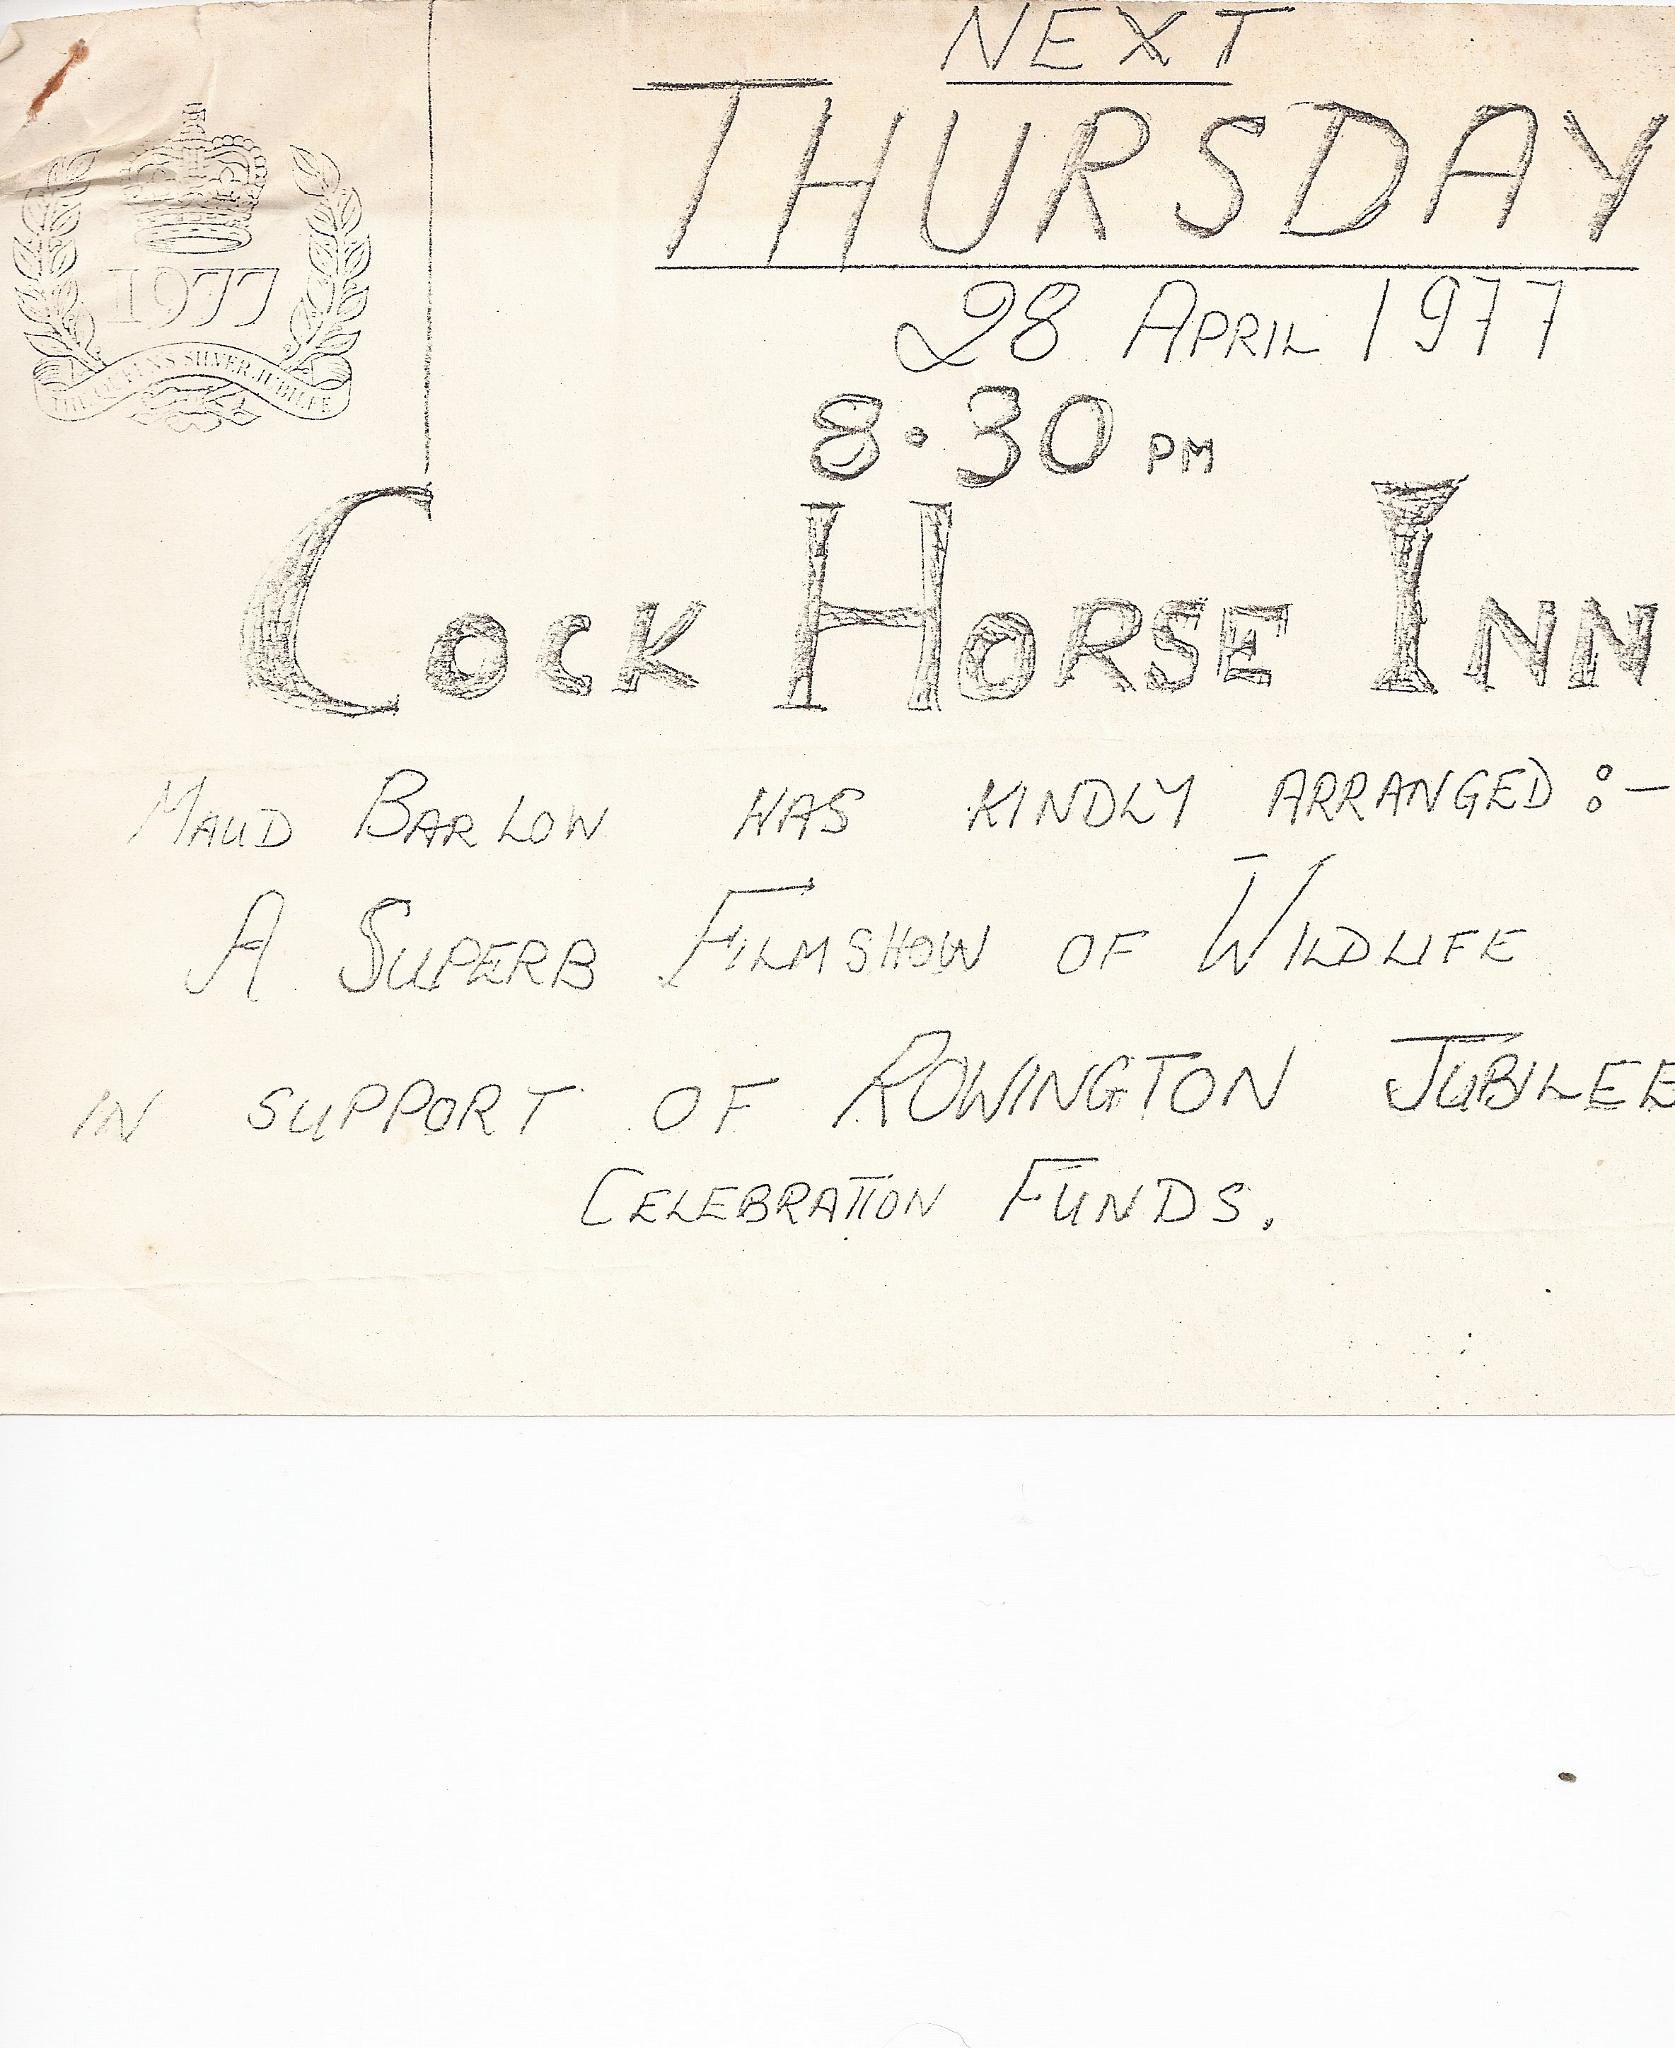 NEXT
THURSDAY
1977
THE QUEEN'S SILVER JUBILEE
28 APRIL 1977
8.30 PM
COCK HORSE INN
MAUD BARLOW HAS KINDLY ARRANGED:-
A SUPERB FILMSHOW OF WILDLIFE
IN SUPPORT OF ROWINGTON JUBILEE
CELEBRATION FUNDS.